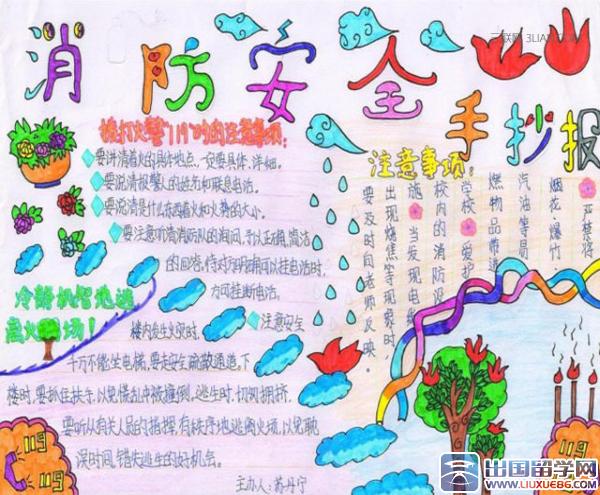 消防安全手抄报
三联网 3LIAN.COM
拨打火警"119"时的注意事项:
要讲清着火的具体地点,一定要具体、详细。
要说清报警人的姓名和联系电话。
要说清是什么东西着火和火势的大小。
要注意听清消防队的询问,予以正确,简洁
的回答,待对方明确可以挂电话时,
方可挂断电话。
冷静机智地逃
离火场!
注意安全
楼内发生火灾时,
千万不能坐电梯,要走安全疏散通道,下
楼时,要抓住扶手,以免慌乱中被撞倒。逃生时,切勿拥挤,
要听从有关人员的指挥,有秩序地逃离火场,以免耽
误时间,错失逃生的好机会。
主办人:苏丹宁
注意事项:
严禁将
烟花、爆竹、
汽油等易
燃物品带进
学校 爱护
校内的消防设
施 当发现电线
出现烧焦等现象时
要及时向老师反映。
119
119
119
119
出国留学网
www.liuxue86.com